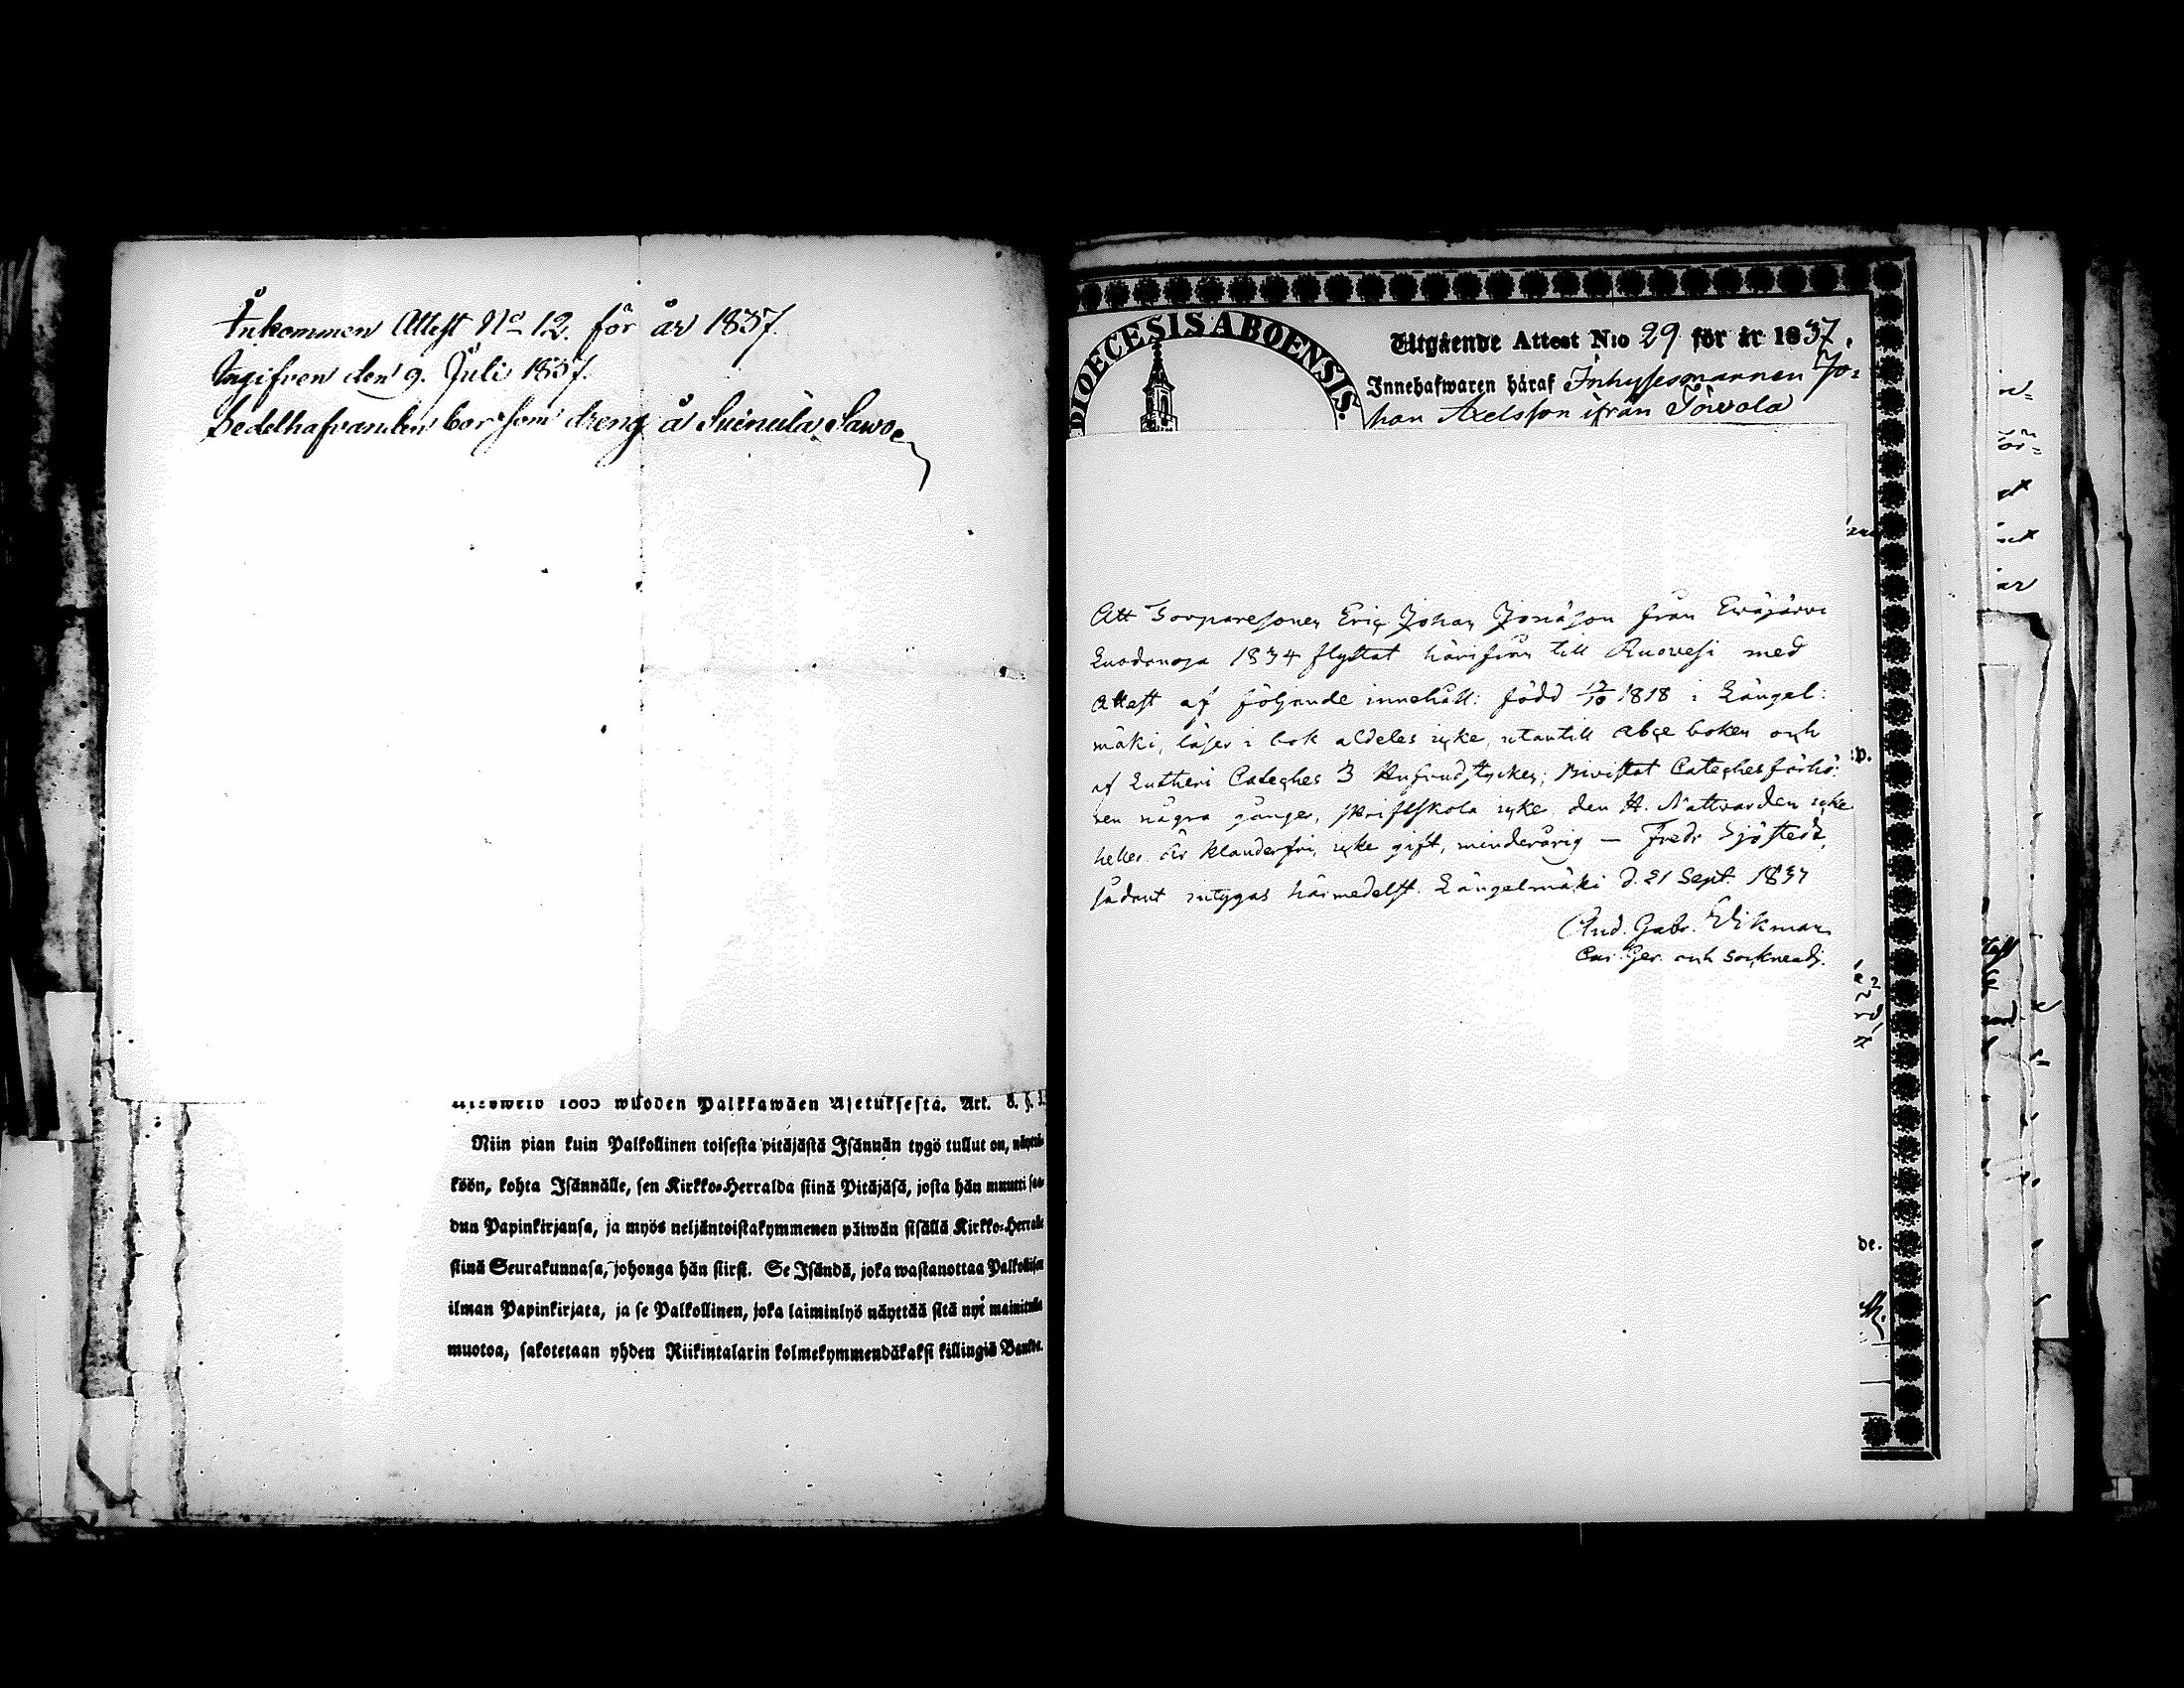 Ankommen Attest No 12. för år 1837.
Ingifven den 9. Juli 1837.
Sedelhafvanden bor som dreng å Suinula Sawo
wuoden Palkkawäen Asetuksesta. Art. 8. §. 1.
Niin pian kuin Palkollinen toisesta pitäjästä Isännän tygö tullut on, näyttä-
köön, kohta Isännälle, sen Kirkko-Herralda siinä Pitäjäsä, josta hän muutti saa-
dun Papinkirjansa, ja myös neljäntoistakymmenen päiwän sisällä Kirkko-Herralle
siinä Seurakunnasa, johonga hän siirsi. Se Isändä, joka wastanottaa Palkollisen
ilman Papinkirjata, ja se Palkollinen, joka laiminlyö näyttää sitä nyt mainitulla
muotoa, sakotetaan yhden Riikintalarin kolmekymmendäkaksi killingiä Banko.
DIOECESIS ABOENSIS.
Utgående Attest N:o 29 för år 1837.
Innehafwaren häraf Inhysesmannen Jo-
han Axelsson ifrån
Att Torparesonen Eric Johan Jonasson från Eräjärvi
1834 flyttat härifrån till Ruovesi med
attest af följande innehåll: född 1818 i Längel:
mäki, läser i bok aldeles icke, utantill abc boken och
af Lutheri Cateches 3 Hufvudstycken; bivistat Catechesförhö:
ren några gånger, skriftskola icke, den H. Nattvarden icke
heller. är klanderfri, icke gift, minderårig — Fredr Sjöstedt,
sådant intygas härmedelst. Längelmäki d. 21 Sept. 1837
And. Gabr. Wikman
och Sockneadj.